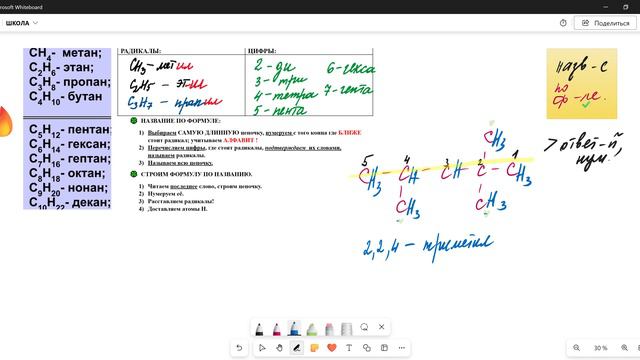 Microsoft Whiteboard
ШКОЛА
Поделиться
CH4- метан;
C2H6- этан;
C3H8- пропан;
C4H10- бутан
C5H12- пентан;
C6H14- гексан;
C7H16- гептан;
C8H18- октан;
C9H20- нонан;
C10H22- декан;
РАДИКАЛЫ:
CH3-метил
C2H5 - этил
C3H7 - пропил
ЦИФРЫ:
2 - ди
3 - три
4 - тетра
5 - пента
6 - гекса
7 - гепта
НАЗВАНИЕ ПО ФОРМУЛЕ:
1) Выбираем САМУЮ ДЛИННУЮ цепочку, нумеруем с того конца где БЛИЖЕ
стоит радикал; учитываем АЛФАВИТ !
2) Перечисляем цифры, где стоят радикалы, подтверждаем их словами,
называем радикалы.
3) Называем всю цепочку.
СТРОИМ ФОРМУЛУ ПО НАЗВАНИЮ.
1) Читаем последнее слово, строим цепочку.
2) Нумеруем её.
3) Расставляем радикалы!
4) Доставляем атомы H.
CH3
5 4 3 2 1
CH3 - CH - CH - C - CH3
CH3 CH3
2,2,4 - триметил
назв-е
по
ф-ле.
> ответ-й,
нум.
30 %